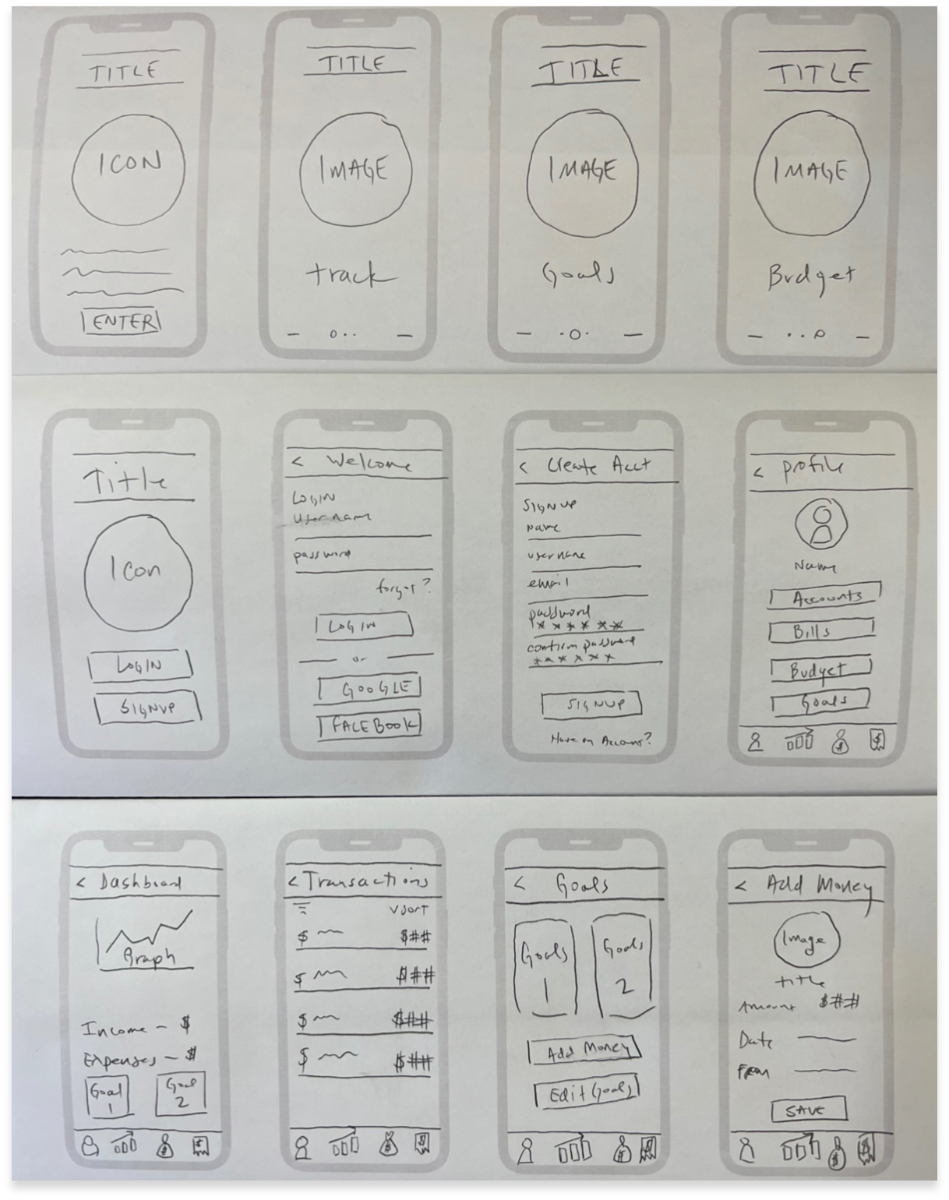 TITLE
ICON
ENTER
TITLE
IMAGE
track
TITLE
IMAGE
Goals
TITLE
IMAGE
Budget
Title
Icon
LOGIN
SIGNUP
< Welcome
LOGIN
Username
password
forgot?
LOGIN
or
GOOGLE
FACEBOOK
< Create Acct
SIGNUP
Name
username
email
password
******
confirm password
******
SIGNUP
Have an Account?
< Profile
Name
Accounts
Bills
Budget
Goals
$
$
< Dashboard
Graph
Income - $
Expenses - $
Goal Goal
1 2
$
$
< Transactions
V SORT
$ $##
$ $##
$ $##
$ $##
$
$
< Goals
Goals Goals
1 2
Add Money
Edit Goals
$
$
< Add Money
Image
title
Amount $##
Date
From
SAVE
$
$